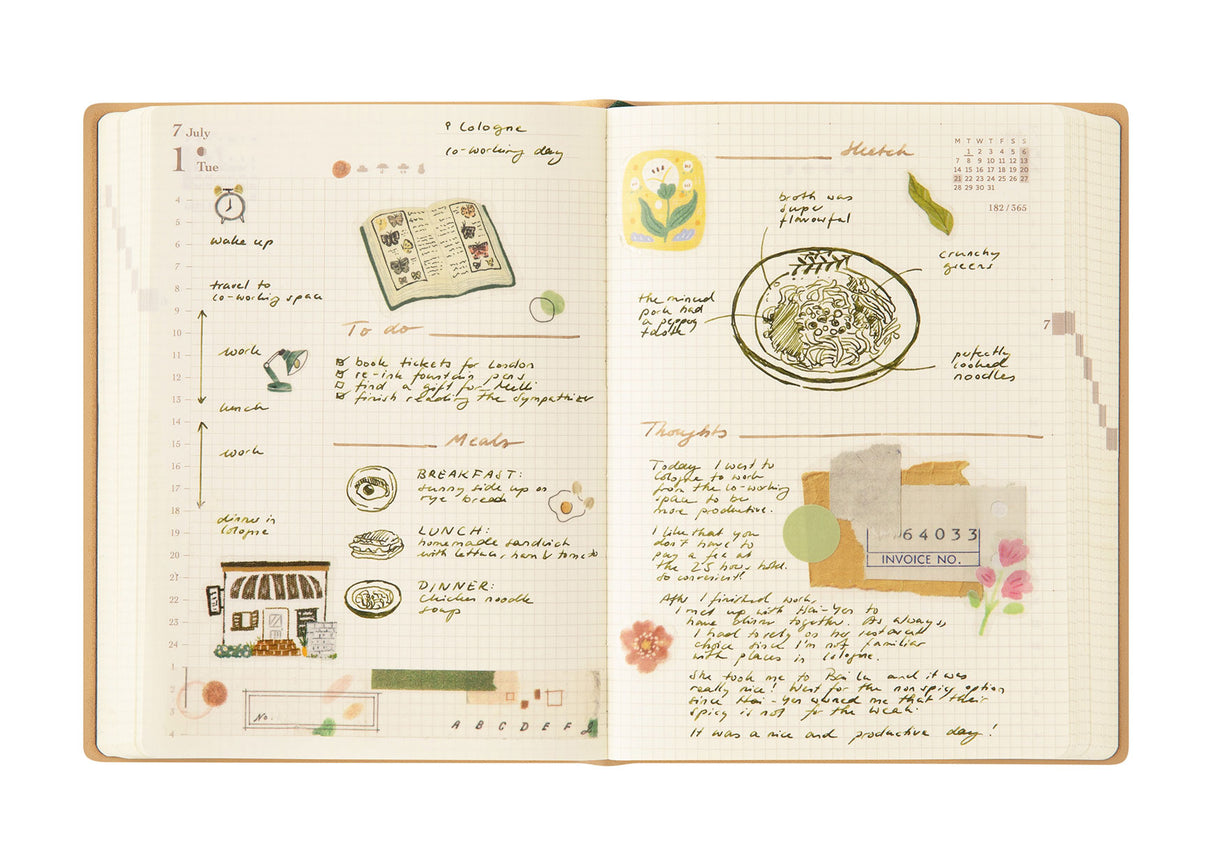 7 July
1 Tue
Cologne
co-working day
4
5
6
wake up
7
travel to
8
co-working space
9
10
11
work
12
13
lunch
14
15
work
16
17
18
dinner in
19
Cologne
20
21
22
23
24
1
2
3
4
To do
book tickets for London
re-ink fountain pens
find a gift for Melli
finish reading the Sympathizer
Meals
BREAKFAST:
sunny side up on
rye bread
LUNCH:
homemade sandwich
with lettuce, ham & tomato
DINNER:
chicken noodle
soup
No.
A B C D E F
Sketch
M T W T F S S
1 2 3 4 5 6
7 8 9 10 11 12 13
14 15 16 17 18 19 20
21 22 23 24 25 26 27
28 29 30 31
182/365
broth was
super
flavourful
crunchy
greens
the minced
pork had
a peppery
taste
perfectly
cooked
noodles
7
Thoughts
Today I went to
Cologne to work
from the co-working
space to be
more productive.
I like that you
don't have to
pay a fee at
the 25 hours hotel.
So convenient!
64033
INVOICE NO.
After I finished work,
I met up with Hai-Yen to
have dinner together. As always,
I had to rely on her restaurant
choice since I'm not familiar
with places in Cologne.
She took me to Bai Lu and it was
really nice! Went for the non spicy option
since Hai-Yen warned me that their
spicy is not for the weak.
It was a nice and productive day!